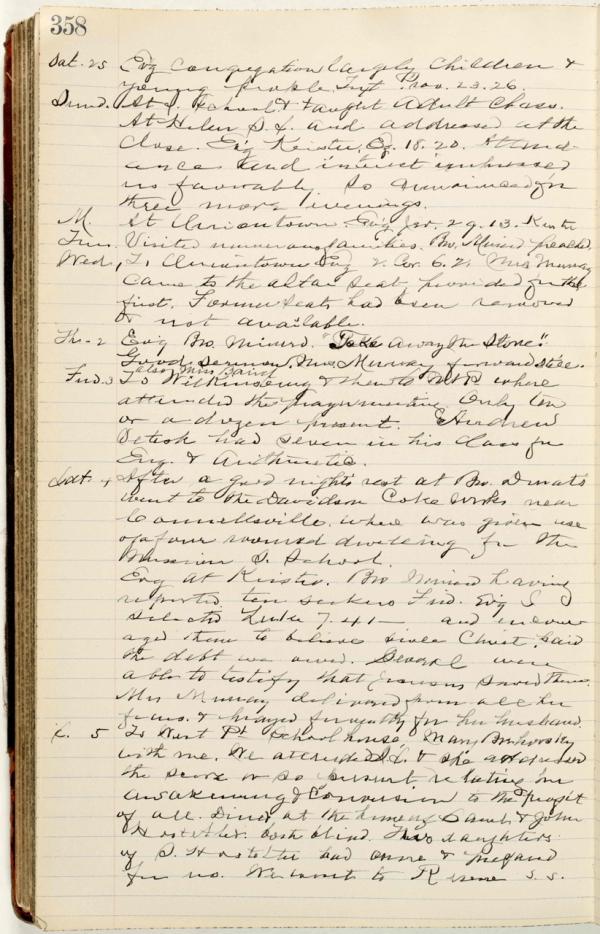 358
Sat. 25 Evg congregation largely children &
young people. Text Prov. 23.26
Sund. At S. School & taught Adult Class.
At Helen S. S. and addressed at the
close. Evg Keister, 18.20. Attend-
ance and interest impressed
us favorably. So announced for
three more evenings.
M. At Evg Jer. 29.13.
Tues. Visited numerous families. Bro. preached.
Wed, To Evg 2. Cor. 6.2. Mrs Murray
came to the altar seat, provided for the
first. Former seats had been removed
or not available.
Th. 2 Evg Bro. "Take Away the Stone".
Good sermon. Mrs. Murray forward still.
also Miss Baird
Frid. 3 To & then to where
attended the prayermeeting. Only ten
or a dozen present. Andrew
had seven in his class for
Eng. & Arithmetic.
Sat. 4 After a good night's rest at Bro.
went to the Davidson Coke Works near
Connellsville, where was given use
of a four roomed dwelling for the
Mission S. School.
Evg at Keister. Bro having
reported ten seekers Frid. Evg I
selected Luke 7.41— and encour-
aged them to believe since Christ paid
the debt we owed. Several were
able to testify that Jesus saved them.
Mrs Murray delivered from all her
fears & prayed for her husband.
S. 5 To West Pt schoolhouse, Mary
with me. We attended S.S. & she addressed
the score or so present relating her
awakening & Conversion to the profit
of all. Dined at the home of & John
Hostetler. both blind. Two daughters
of S. Hostetler had come & prepared
for us. We went to S.S.